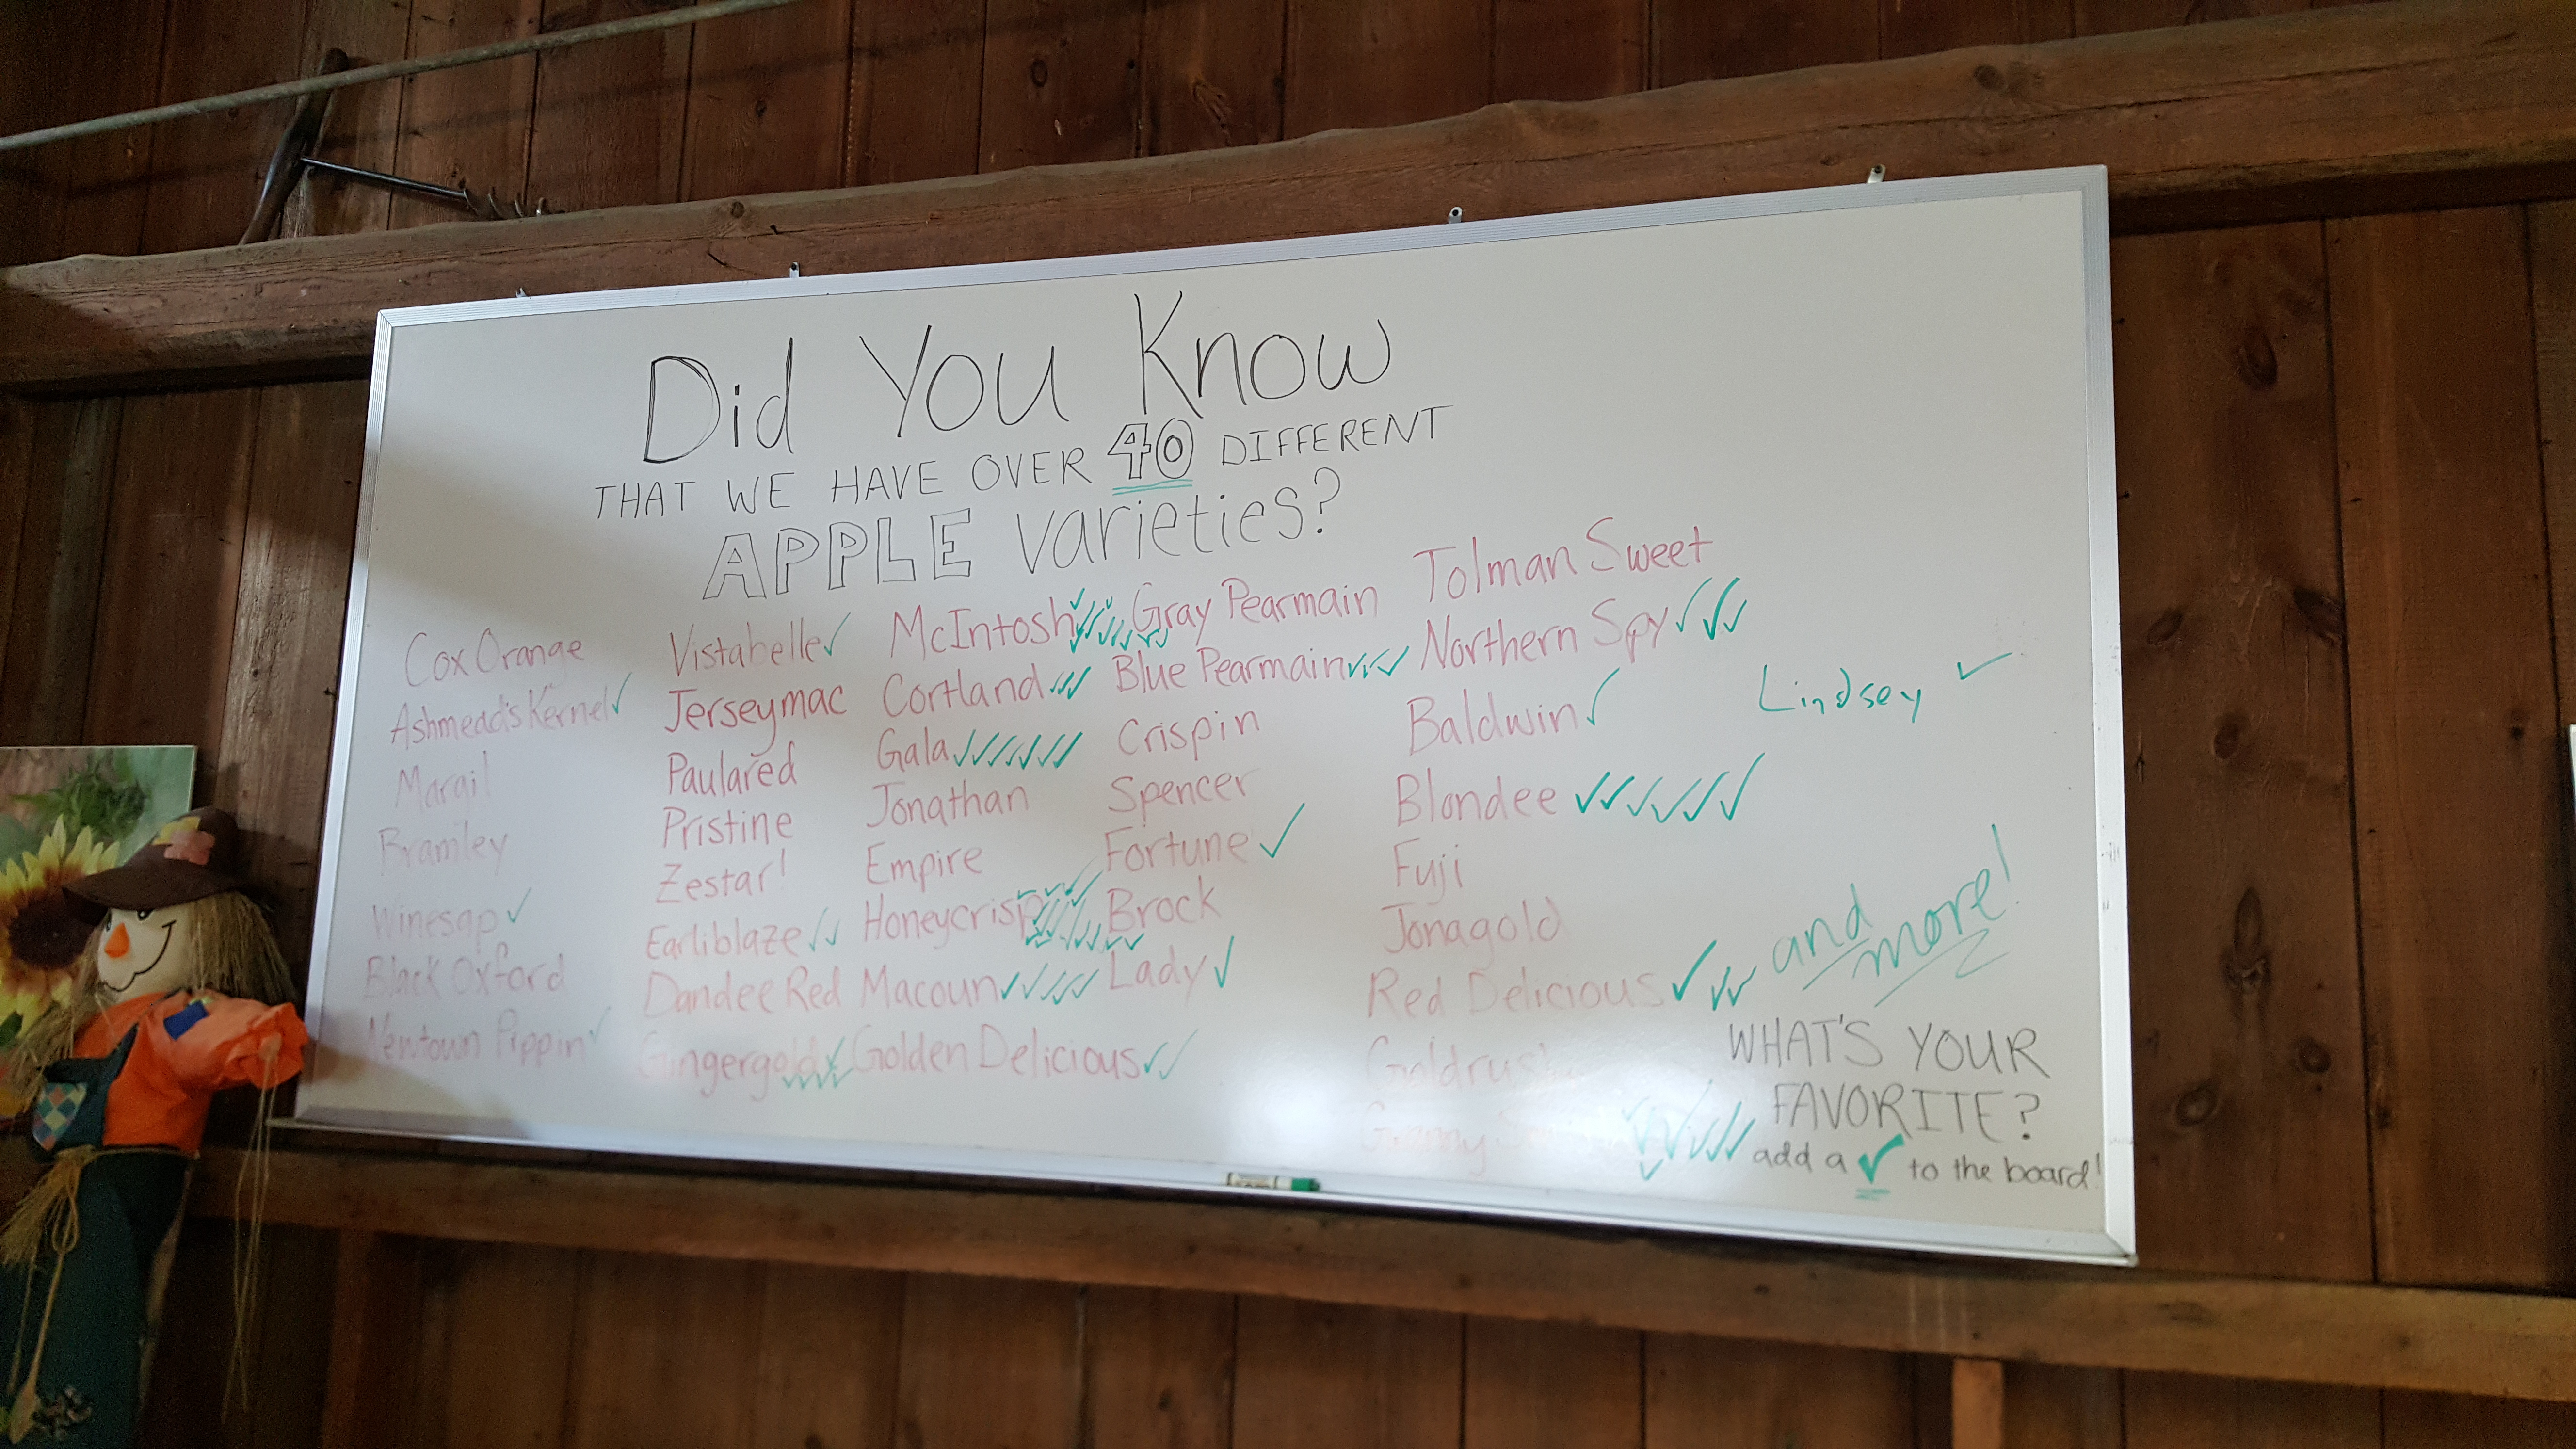 Did You Know
THAT WE HAVE OVER 40 DIFFERENT
APPLE varieties?
Cox Orange
Ashmead's Kernel ✓
Margil
Bramley
Winesap ✓
Black Oxford
Newtown Pippin ✓
Vistabelle ✓
Jerseymac
Paulared
Pristine
Zestar!
Earliblaze ✓✓
Dandee Red
Gingergold ✓✓✓✓✓
McIntosh ✓✓✓✓✓✓✓✓✓
Cortland ✓✓✓
Gala ✓✓✓✓✓✓✓
Jonathan
Empire
Honeycrisp ✓✓✓✓✓✓✓✓✓✓✓✓✓
Macoun ✓✓✓✓✓
Golden Delicious ✓✓
Gray Pearmain
Blue Pearmain ✓✓✓
Crispin
Spencer
Fortune ✓
Brock
Lady ✓
Tolman Sweet
Northern Spy ✓✓✓
Baldwin ✓
Blondee ✓✓✓✓✓✓
Fuji
Jonagold
Red Delicious ✓✓✓
Goldrush
Granny ✓✓✓✓✓✓
Lindsey ✓
and
more!
WHAT'S YOUR
FAVORITE?
add a ✓ to the board!